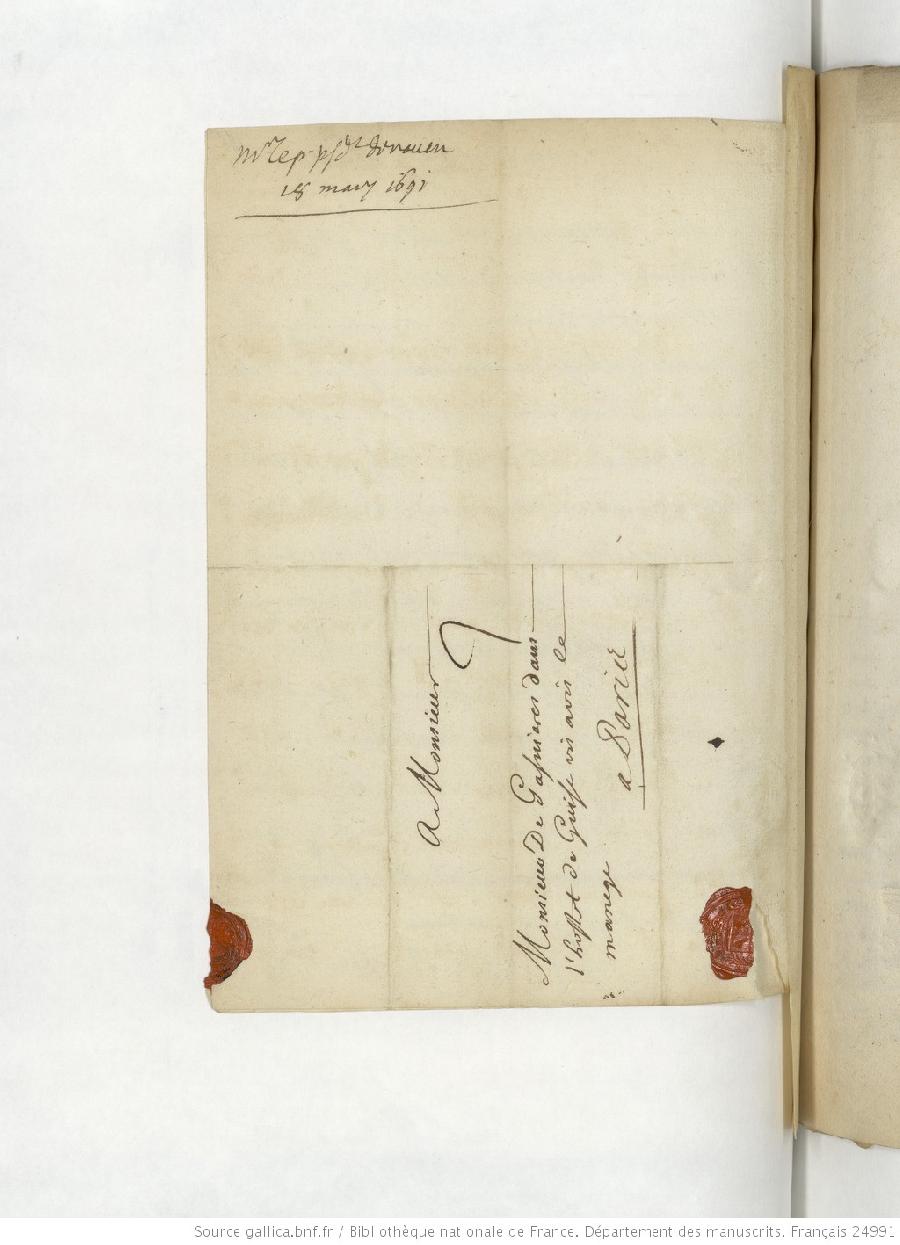 Mr le pr psdt de rouen
18 mars 1691
A Monsieur
Monsieur De Gaſnieres dans
l'hoſtel de Guiſe vis avis le
manege
a Paris
Source gallica.bnf.fr / Bibliothèque nationale de France. Département des manuscrits. Français 24991